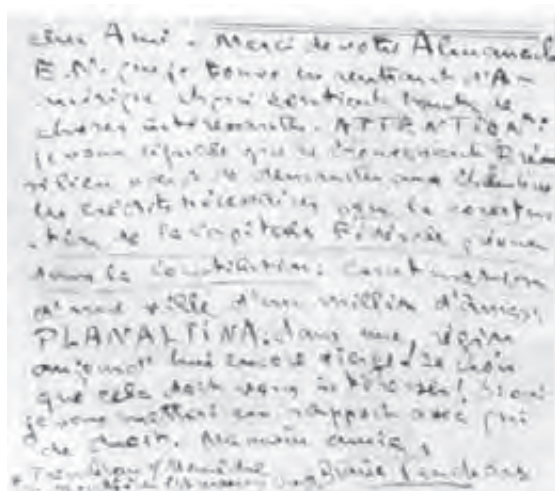 cher Ami. Merci de votre Almanach
E.N. que je trouve en rentrant d'A-
mérique et qui contient tant de
choses intéressantes. ATTENTION:
je vous signale que le Gouvernement Brési
-lien vient de demander aux Chambres
les crédits nécessaires pour la construc
-tion de la Capitale Fédérale prévue
dans la constitution: construction
d'une ville d'un million d'âmes:
PLANALTINA. dans une région
aujourd'hui encore vierge. Je crois
que cela doit vous intéresser! Si oui
je vous mettrai en rapport avec qui
de droit. Ma main amie,
Blaise Cendrars